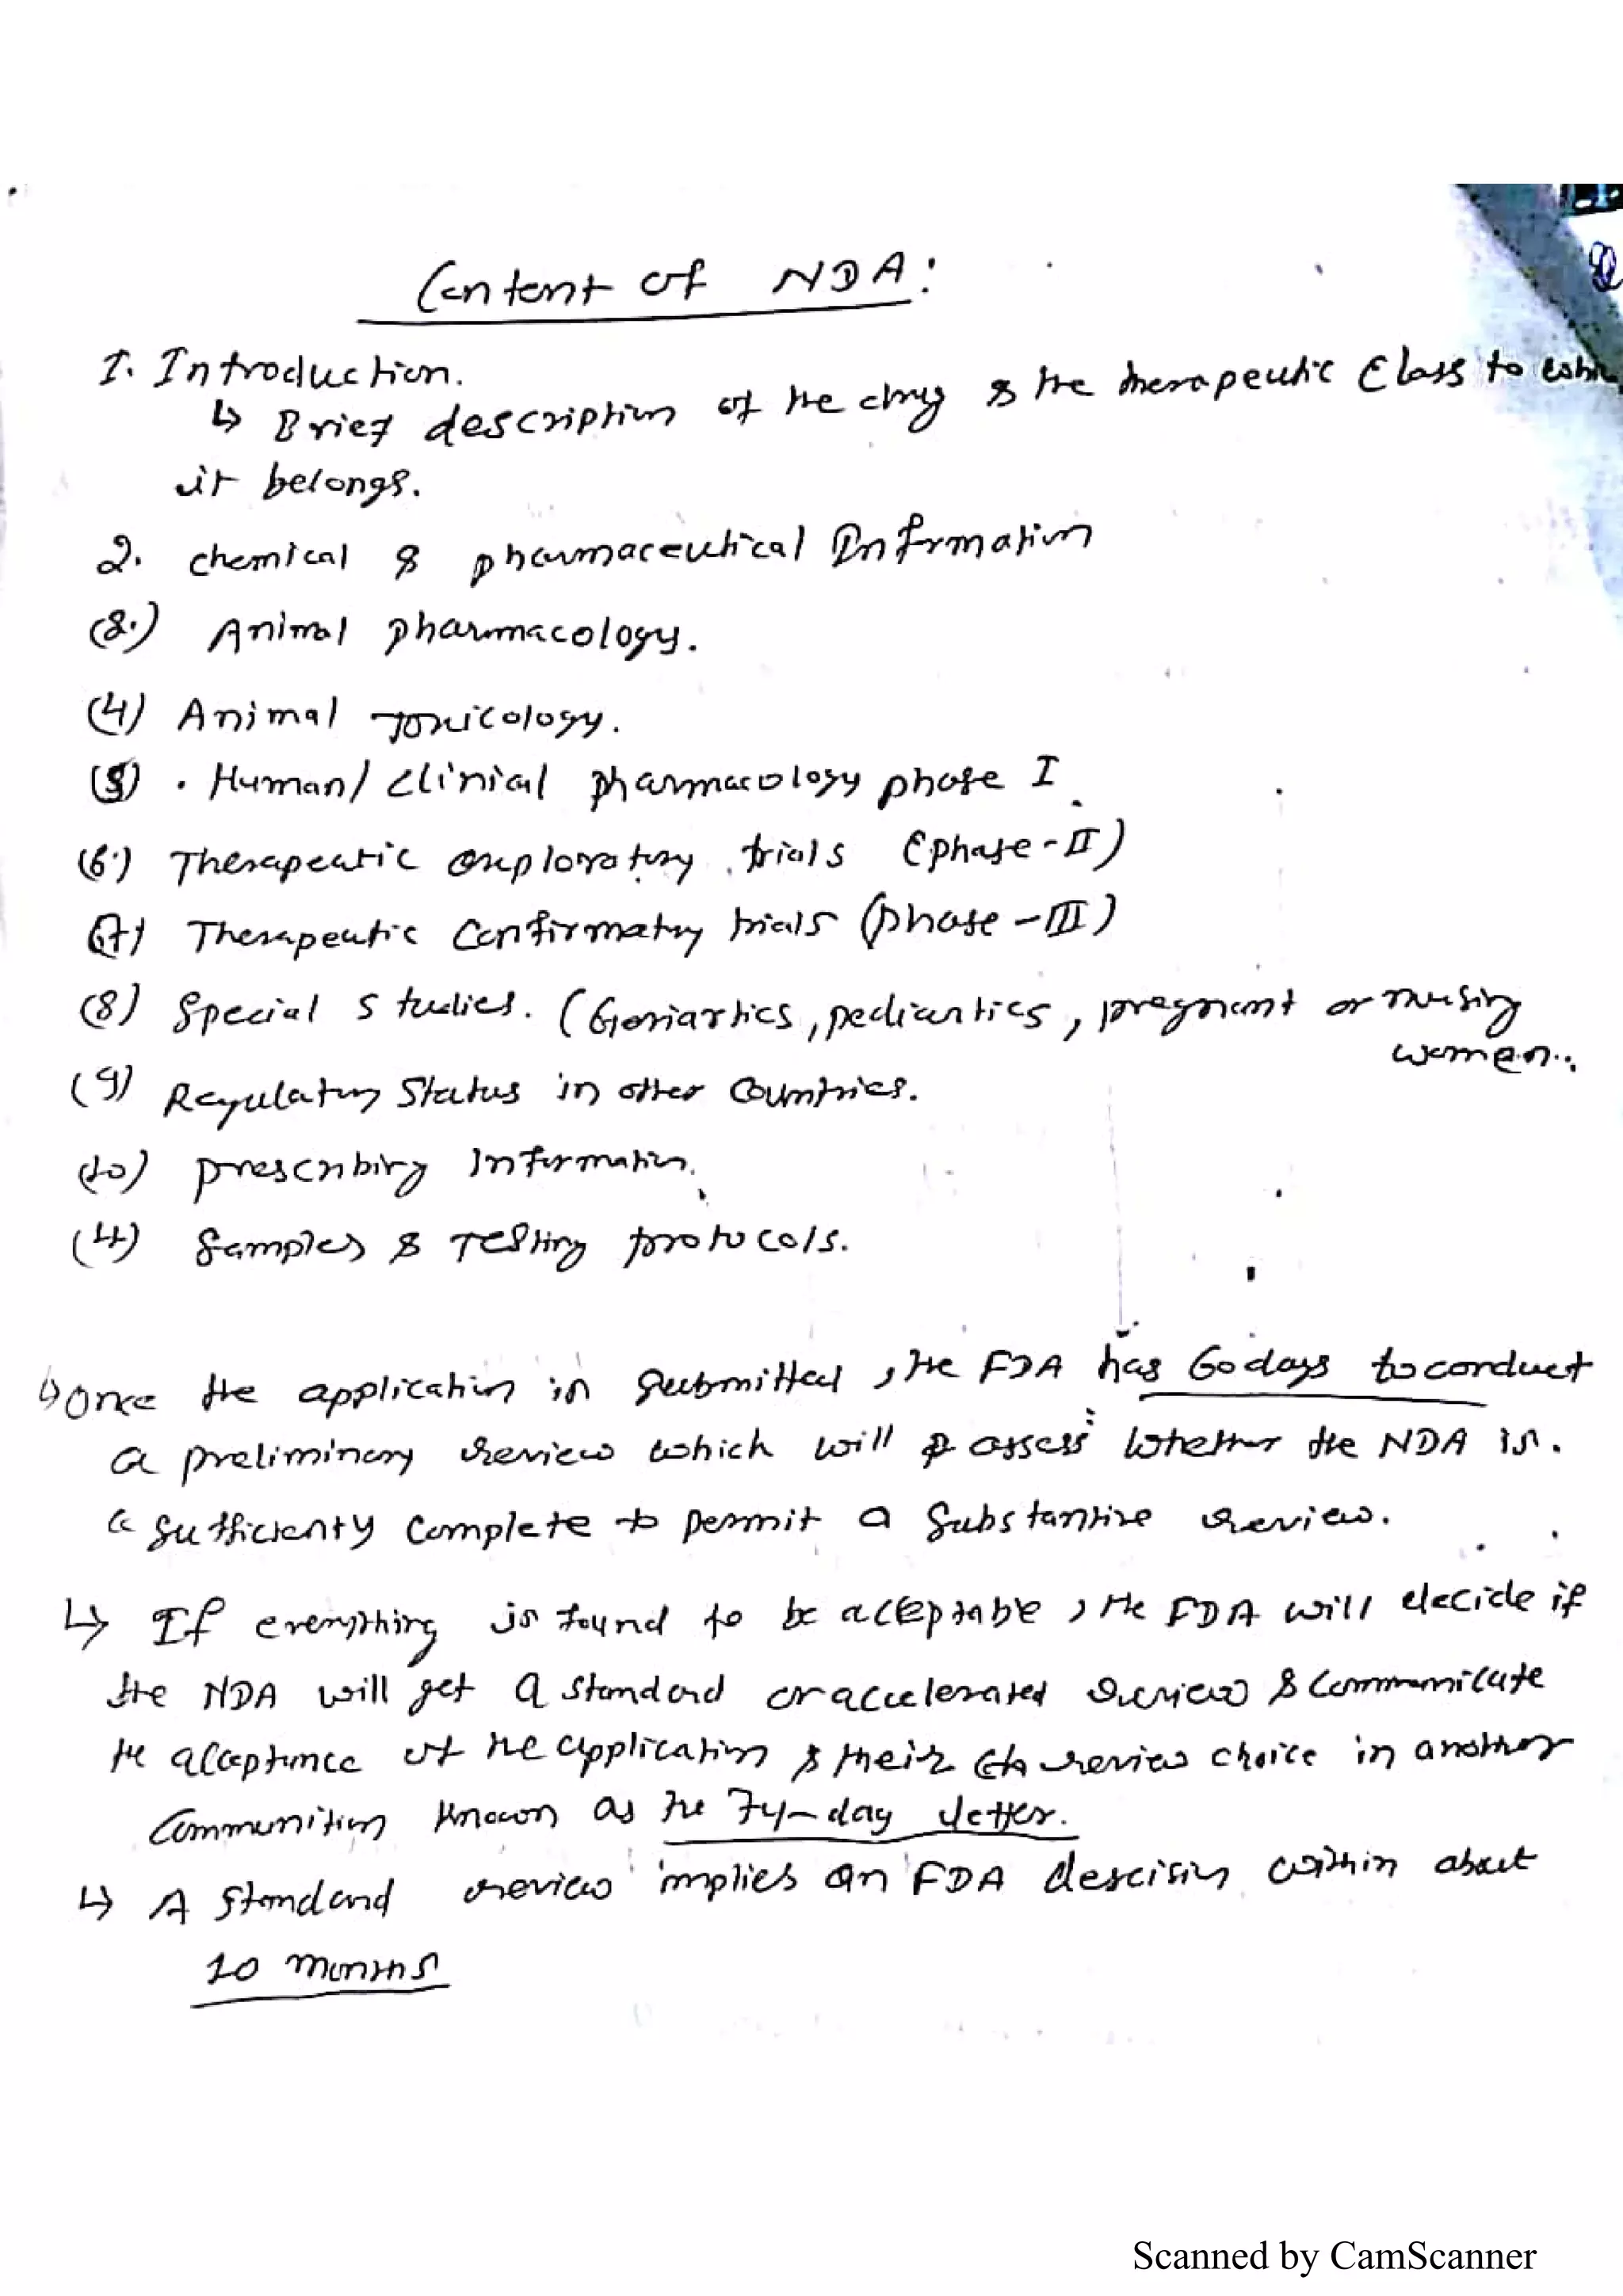 Content of NDA:
1. Introduction.
↳ Brief description of the drug & the therapeutic Class to
it belongs.
2. chemical & pharmaceutical Information
(3.) Animal pharmacology.
(4) Animal Toxicology.
(5) . Human/ clinical pharmacology phase I.
(6.) Therapeutic exploratory trials (phase-II)
(7) Therapeutic Confirmatry trials (phase-III)
(8) Special Studies. (Geriartics, pediartics, pregnant or nursing
women.
(9) Regulatory Status in other Countries.
(10) prescribing Information.
(11) Samples & Testing protocols.
↳ Once the application is submitted, the FDA has 60 days to conduct
a preliminary review which will assess whether the NDA is.
"sufficienty complete to permit a substantive review.
↳ If everything is found to be acceptable, the FDA will decide if
the NDA will get a standard or accelerated review & communicate
the acceptance of the application & their review choice in another
Communition known as the 74-day letter.
↳ A standard review implies an FDA descision within about
10 months
Scanned by CamScanner